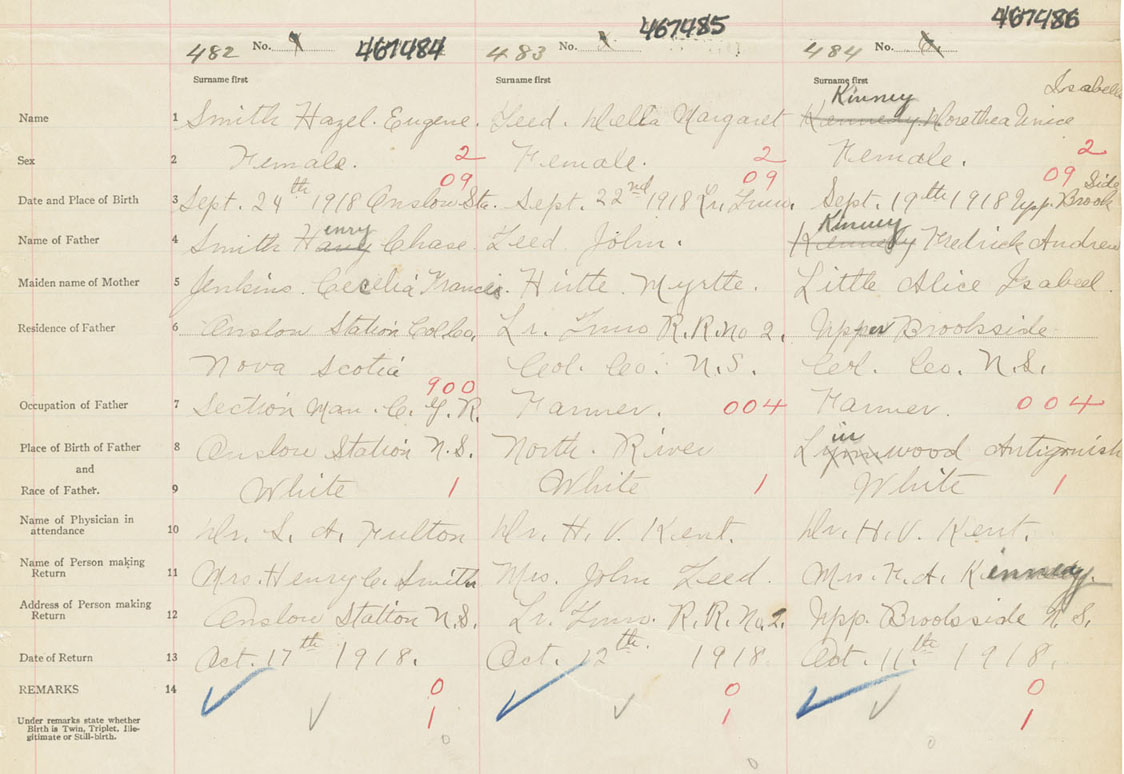 467484 467485 467486
482 No. 483 No. 484 No.
Surname first Surname first Surname first
Kinney Isabell
Name 1 Smith Hazel. Eugene. Leed. Della Margaret Kennedy. Dorethea Unice
Sex 2 Female. 2 Female. 2 Female. 2
09 09 09 Side
Date and Place of Birth 3 Sept. 24th 1918 Onslow Sta. Sept. 22nd 1918 Lr. Sept. 19th 1918 Upp. Brook
enry Kinney
Name of Father 4 Smith Harry Chase Leed John. Kennedy Fredrick Andrew
Maiden name of Mother 5 Jenkins. Cecelia Francis. Myrtte. Little Alice Isabeel.
Residence of Father 6 Onslow Station Lr. R.R. No 2. Upper Brookside
Nova Scotia Col. Co. N.S. Col. Co. N.S.
900
Occupation of Father 7 Section Man. C. G. R. Farmer. 004 Farmer. 004
in
Place of Birth of Father 8 Onslow Station N.S. North. River wood Antigonish
and
Race of Father. 9 White 1 White 1 White 1
Name of Physician in
attendance 10 Dr. S. A. Fulton Dr. H. V. Kent. Dr. H. V. Kent.
Name of Person making
Return 11 Mrs. Henry C. Smith Mrs. John Leed. Mrs. F. A.
Address of Person making
Return 12 Onslow Station N.S. Lr. R.R. No. 2. Upp. Brookside N.S.
Date of Return 13 Oct. 17th 1918. Oct. 12th. 1918 Oct. 11th 1918.
REMARKS 14 0 0 0
Under remarks state whether
Birth is Twin, Triplet, Ille-
gitimate or Still-birth. 1 1 1
0 0 0